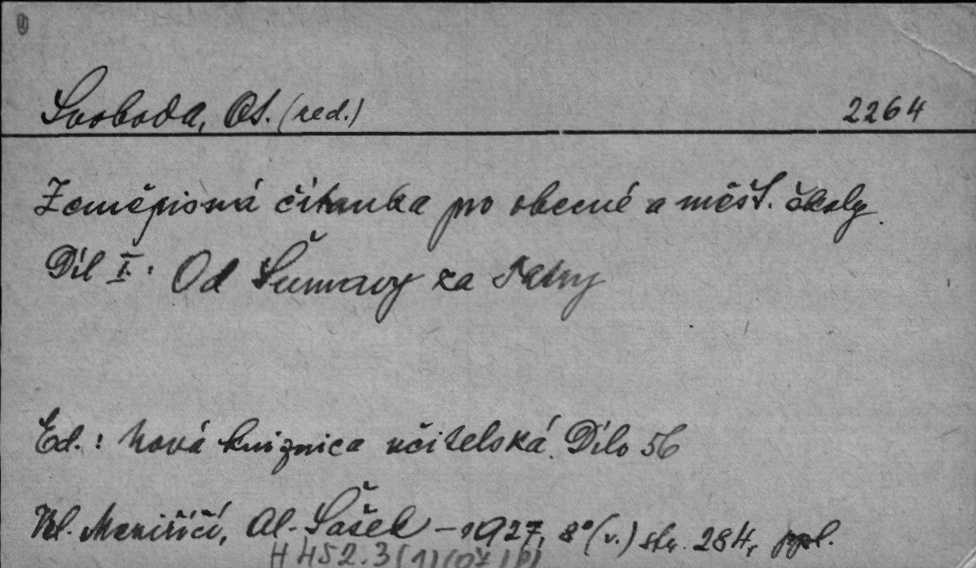 Svoboda, Al. (red.) 2264
Zeměpisná čítanka pro obecné a měšť. školy.
Díl I.: Od Šumavy za Tatry
Ed.: Nová knižnica učitelská. Dílo 56
Vel. Meziříčí, Al. Šašek – 1927, 8° (v.) str. 284, ppl.
H 452.3(1)(07)(b)